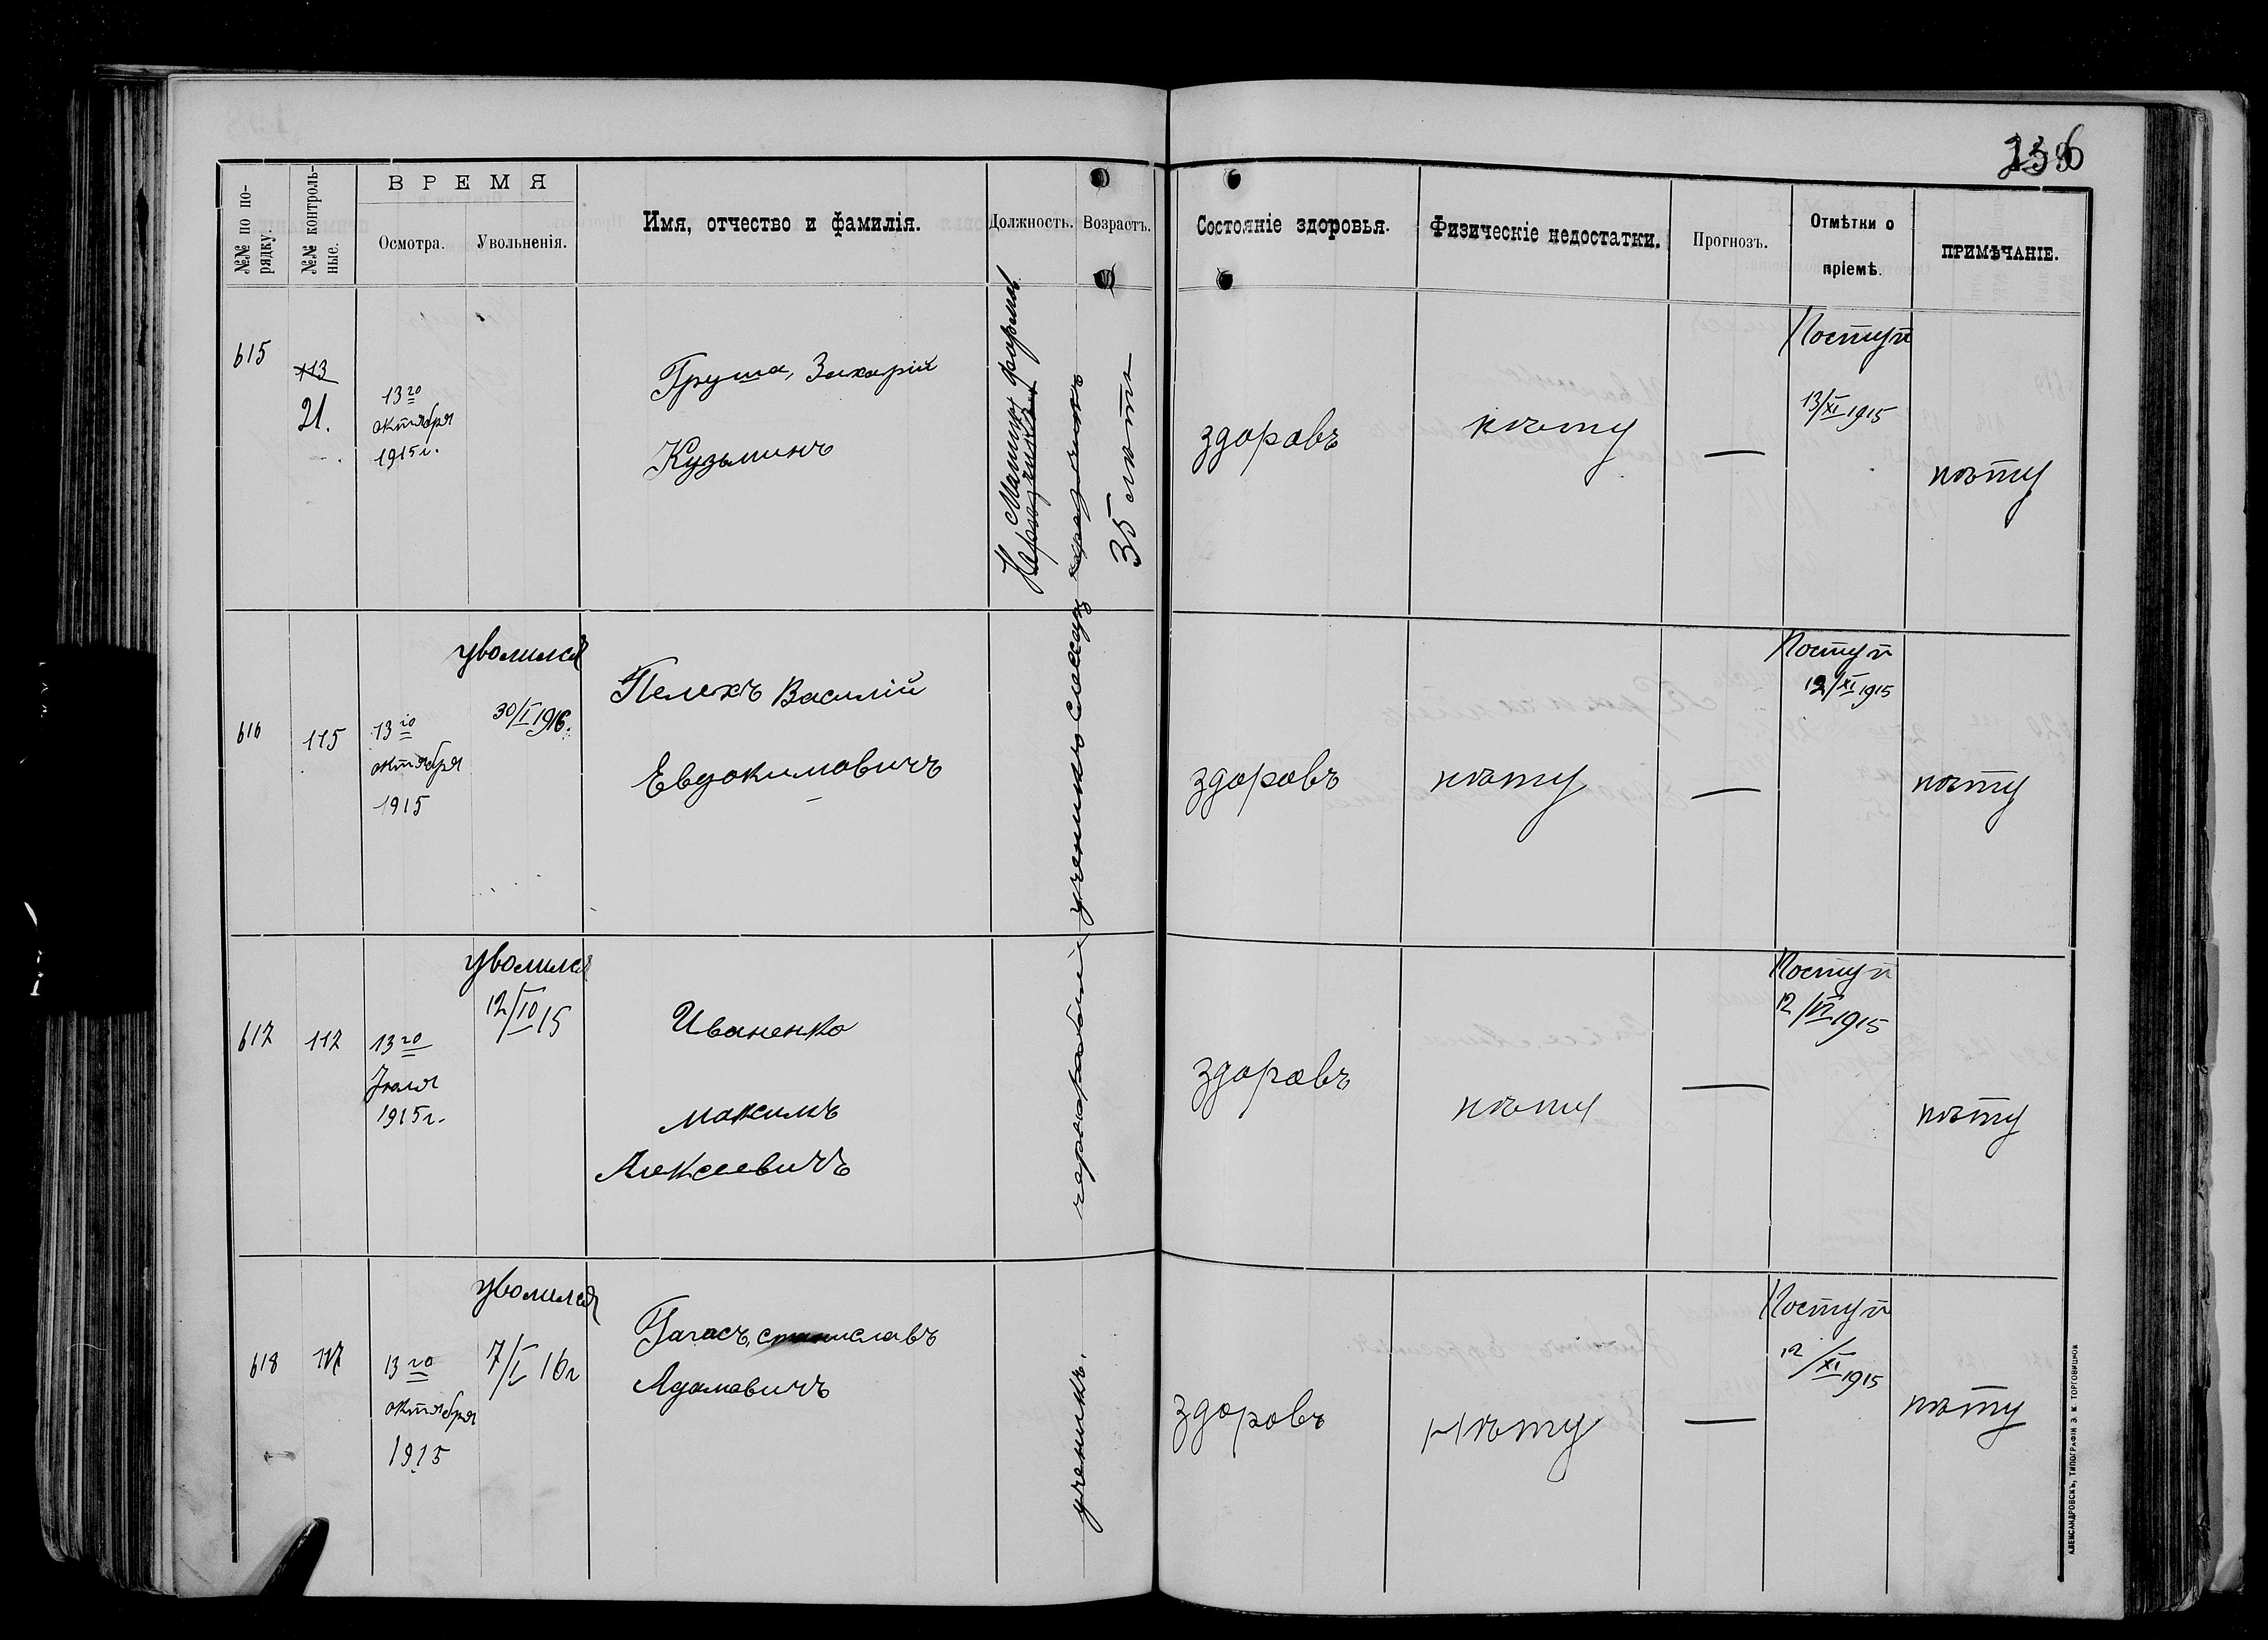 136
№№ по по-
рядку.
№№ контроль-
ные.
ВРЕМЯ
Осмотра.
Увольненія.
Имя, отчество и фамилія.
Должность.
Возрастъ.
Состояніе здоровья.
Физическіе недостатки.
Прогнозъ.
Отмѣтки о
пріемѣ.
ПРИМѢЧАНІЕ.
615
113
21.
13го
октября
1915г.
Груша, Захарій
Кузьминъ
35 лѣтъ
здоровъ
нѣту
—
Поступ
13/XI 1915
нѣту
616
115
13го
октября
1915
уволился
30/I 1916.
Пелехъ Василій
Евдокимовичъ
ученикъ слесар
здоровъ
нѣту
—
Поступ
12/XI 1915
нѣту
617
117
13го
Іюля
1915г.
уволился
12/10 15
Иваненко
Максимъ
Алексеевичъ
чернорабочій
здоровъ
нѣту
—
Поступ
12/VI 1915
нѣту
618
117
13го
октября
1915
уволился
7/I 16г
Гагасъ, станиславъ
Адамовичъ
ученикъ.
здоровъ
Нѣту
—
Поступ
12/XI 1915
нѣту
АЛЕКСАНДРОВСКЪ, ТИПОГРАФІЯ Э. М. ТОРГОВИЦКОЙ